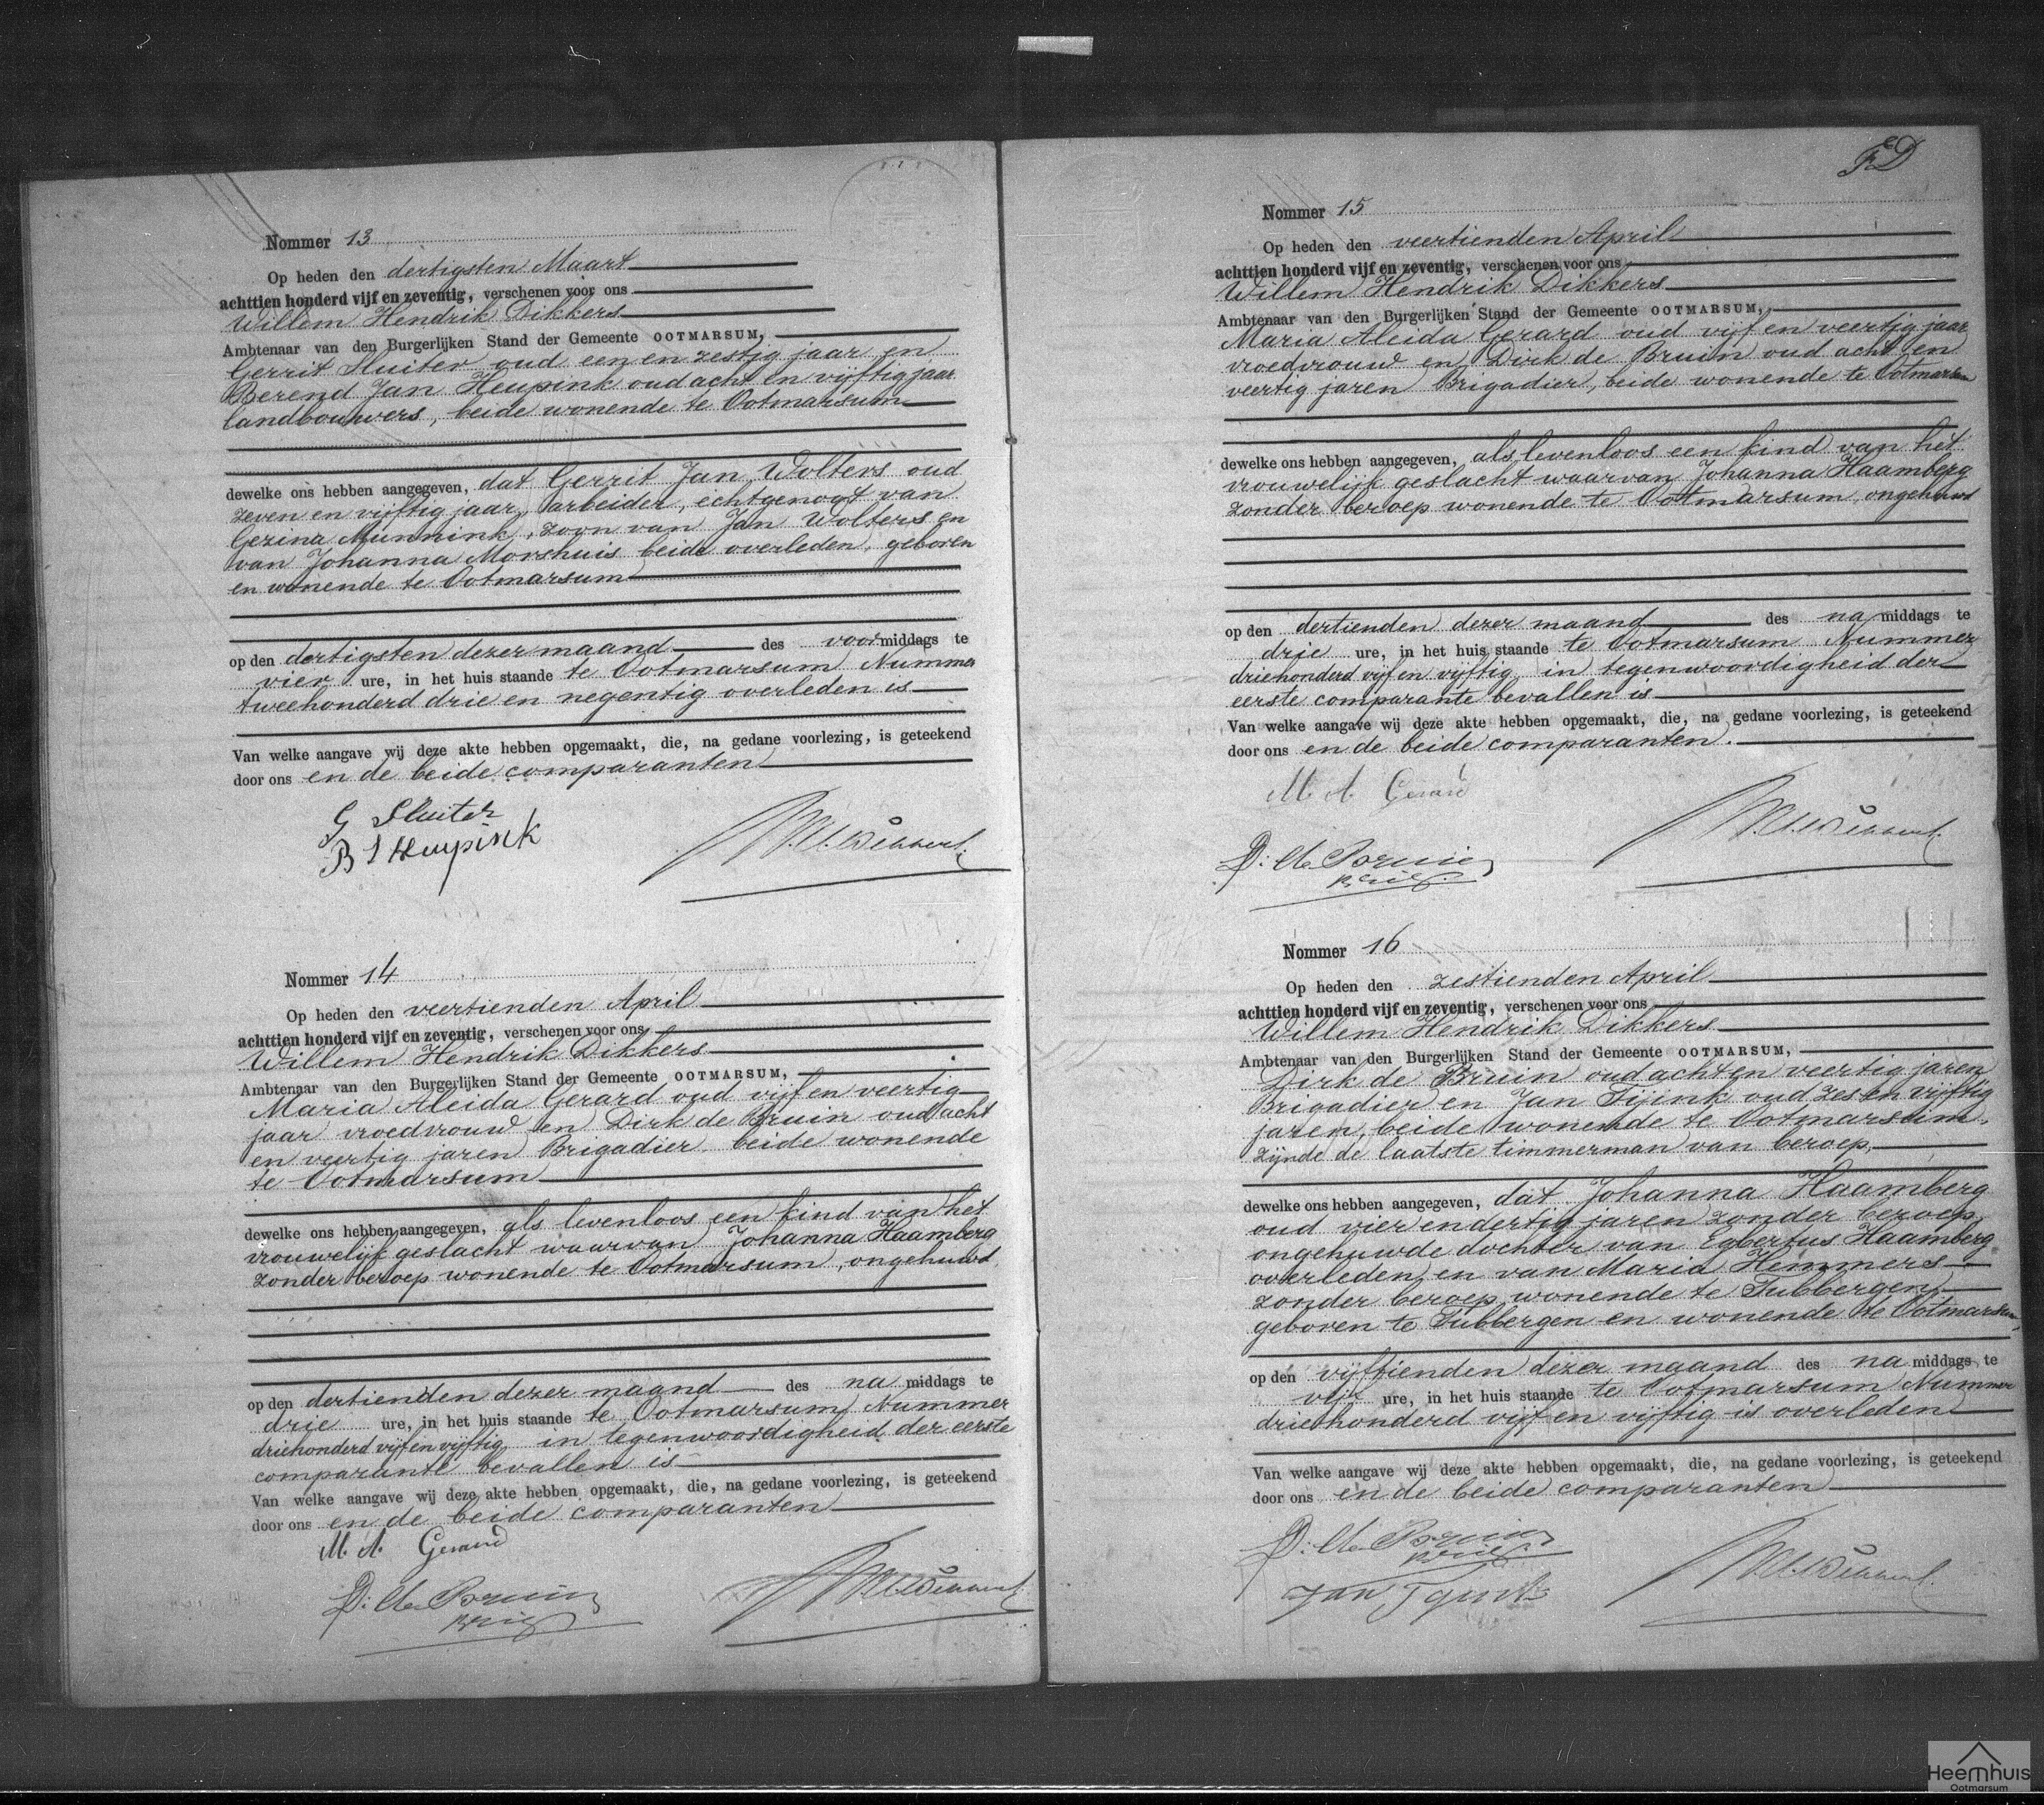 Nommer 13
Op heden den dertigsten Maart
achttien honderd vijf en zeventig, verschenen voor ons
Willem Hendrik Dikkers
Ambtenaar van den Burgerlijken Stand der Gemeente OOTMARSUM,
Gerrit Sluiter oud een en zestig jaar en
Berend Jan Heupink oud acht en vijftig jaar
landbouwers, beide wonende te Ootmarsum
dewelke ons hebben aangegeven, dat Gerrit Jan Wolters oud
zeven en vijftig jaar, arbeider, echtgenoot van
Gezina Munnink, zoon van Jan Wolters en
van Johanna Morshuis beide overleden, geboren
en wonende te Ootmarsum
op den dertigsten dezer maand des voormiddags te
vier ure, in het huis staande te Ootmarsum Nummer
tweehonderd drie en negentig overleden is
Van welke aangave wij deze akte hebben opgemaakt, die, na gedane voorlezing, is geteekend
door ons en de beide comparanten
G Sluiter
B J Heupink
Nommer 14
Op heden den veertienden April
achttien honderd vijf en zeventig, verschenen voor ons
Willem Hendrik Dikkers
Ambtenaar van den Burgerlijken Stand der Gemeente OOTMARSUM,
Maria Aleida Gerard oud vijf en veertig
jaar vroedvrouw en Dirk de Bruin oud acht
en veertig jaren Brigadier, beide wonende
te Ootmarsum
dewelke ons hebben aangegeven, als levenloos een kind van het
vrouwelijk geslacht waarvan Johanna Haamberg
zonder beroep wonende te Ootmarsum, ongehuwd
op den dertienden dezer maand des na middags te
drie ure, in het huis staande te Ootmarsum Nummer
driehonderd vijf en vijftig in tegenwoordigheid der eerste
comparante bevallen is
Van welke aangave wij deze akte hebben opgemaakt, die, na gedane voorlezing, is geteekend
door ons en de beide comparanten
M. A. Gerard
D: de Bruin
Brig
FD
Nommer 15
Op heden den veertienden April
achttien honderd vijf en zeventig, verschenen voor ons
Willem Hendrik Dikkers
Ambtenaar van den Burgerlijken Stand der Gemeente OOTMARSUM,
Maria Aleida Gerard oud vijf en veertig jaar
vroedvrouw en Dirk de Bruin oud acht en
veertig jaren Brigadier, beide wonende te Ootmarsum
dewelke ons hebben aangegeven, als levenloos een kind van het
vrouwelijk geslacht waarvan Johanna Haamberg
zonder beroep wonende te Ootmarsum, ongehuwd
op den dertienden dezer maand des na middags te
drie ure, in het huis staande te Ootmarsum Nummer
driehonderd vijf en vijftig in tegenwoordigheid der
eerste comparante bevallen is
Van welke aangave wij deze akte hebben opgemaakt, die, na gedane voorlezing, is geteekend
door ons en de beide comparanten.
M. A. Gerard
D: de Bruin
Brig.
Nommer 16
Op heden den zestienden April
achttien honderd vijf en zeventig, verschenen voor ons
Willem Hendrik Dikkers
Ambtenaar van den Burgerlijken Stand der Gemeente OOTMARSUM,
Dirk de Bruin oud acht en veertig jaren
Brigadier en Jan Tijink oud zes en vijftig
jaren, beide wonende te Ootmarsum,
zijnde de laatste timmerman van beroep,
dewelke ons hebben aangegeven, dat Johanna Haamberg
oud vier en dertig jaren zonder beroep,
ongehuwde dochter van Egbertus Haamberg
overleden en van Maria Hemmers
zonder beroep, wonende te Tubbergen,
geboren te Tubbergen en wonende te Ootmarsum,
op den vijftienden dezer maand des na middags te
vijf ure, in het huis staande te Ootmarsum Nummer
driehonderd vijf en vijftig is overleden
Van welke aangave wij deze akte hebben opgemaakt, die, na gedane voorlezing, is geteekend
door ons en de beide comparanten
D: de Bruin
Brig.
Jan Tyink
Heemhuis
Ootmarsum